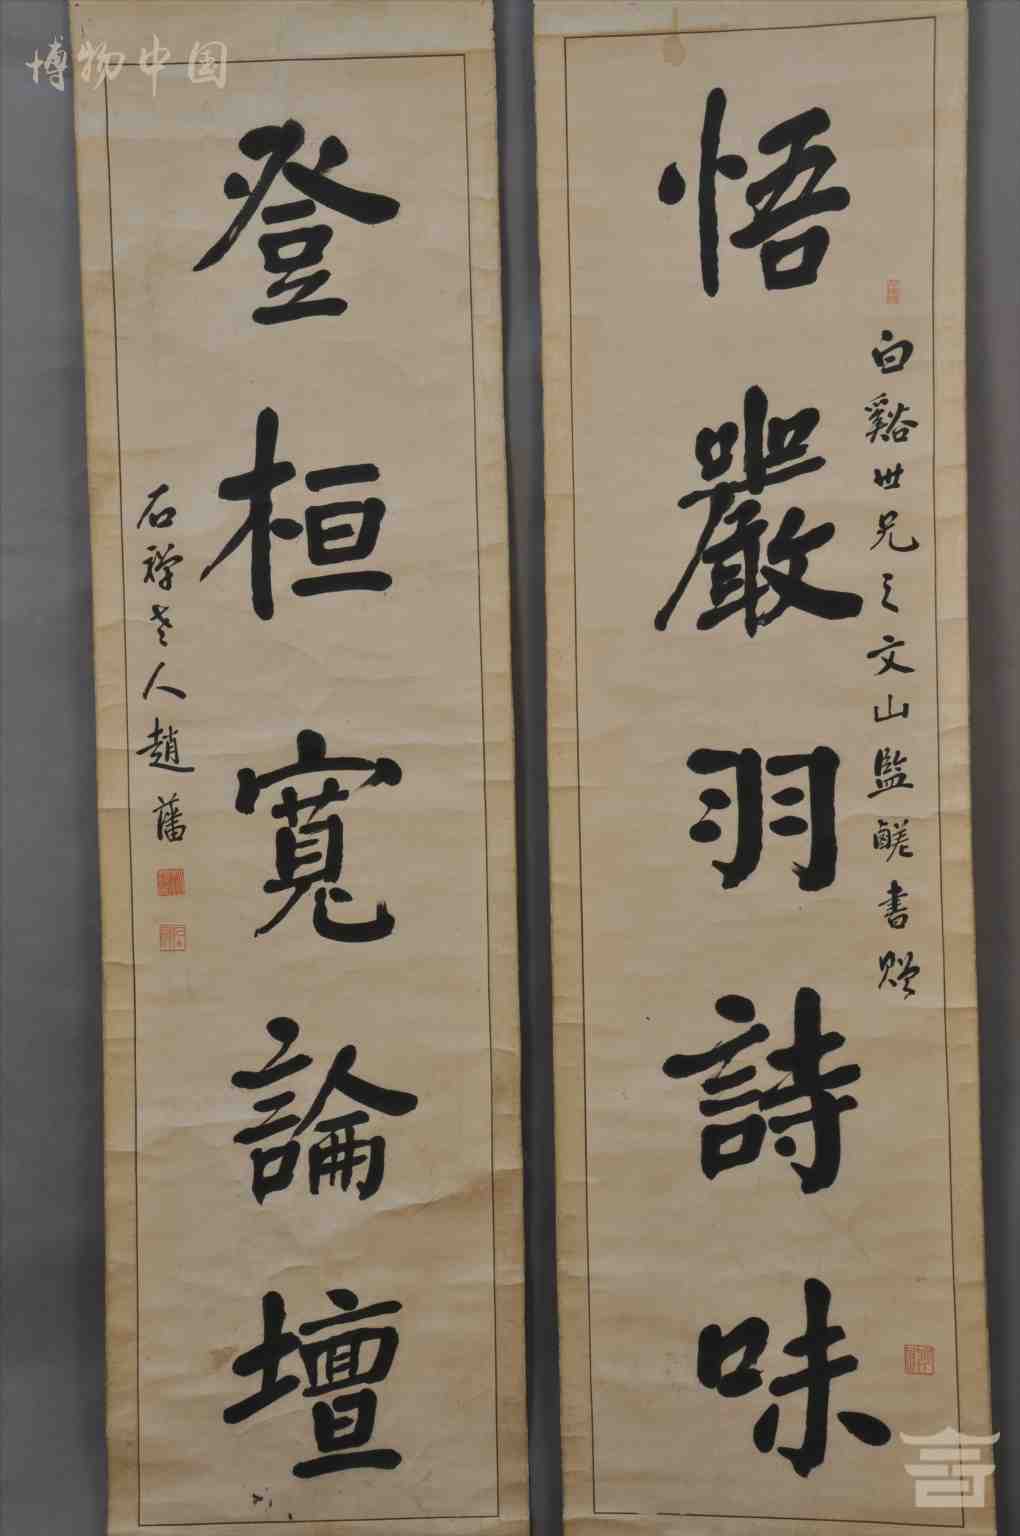 博物中国
悟嚴羽詩味
白谿世兄之文山監鹾書贈
登桓寬論壇
石禪老人趙藩